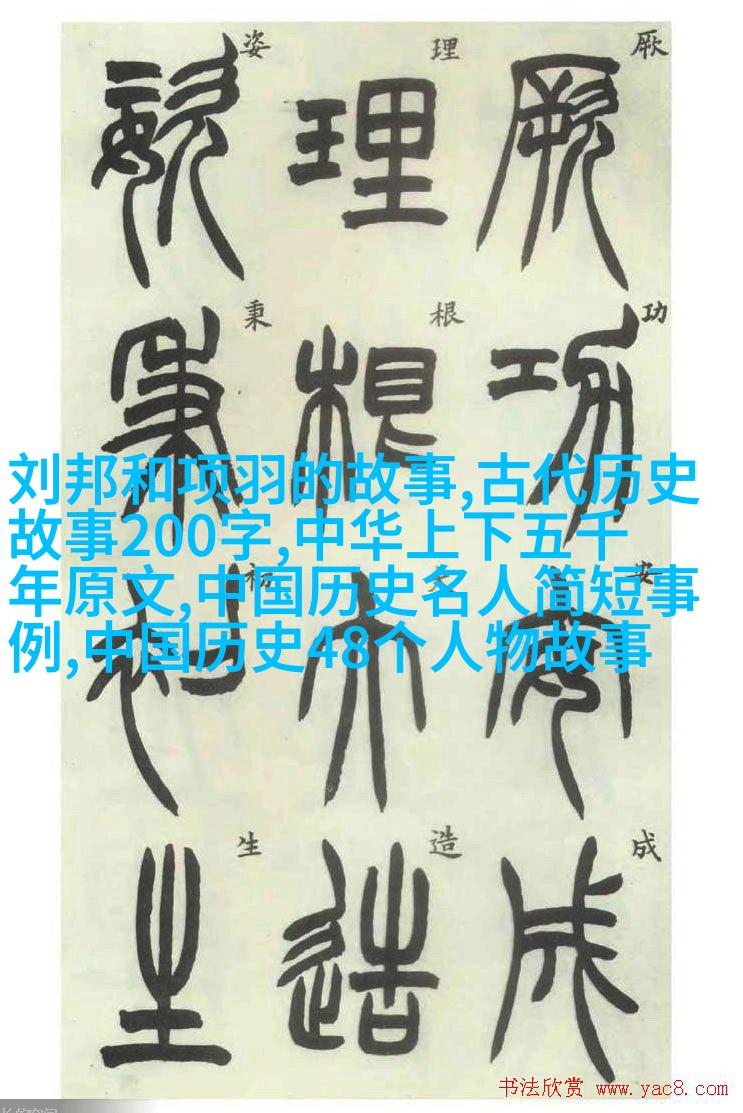 厥功安成
理根大造
姿秉初生
刘邦和项羽的故事,古代历史
故事200字,中华上下五千
年原文,中国历史名人简短事
例,中国历史48个人物故事
书法欣赏 www.yac8.com